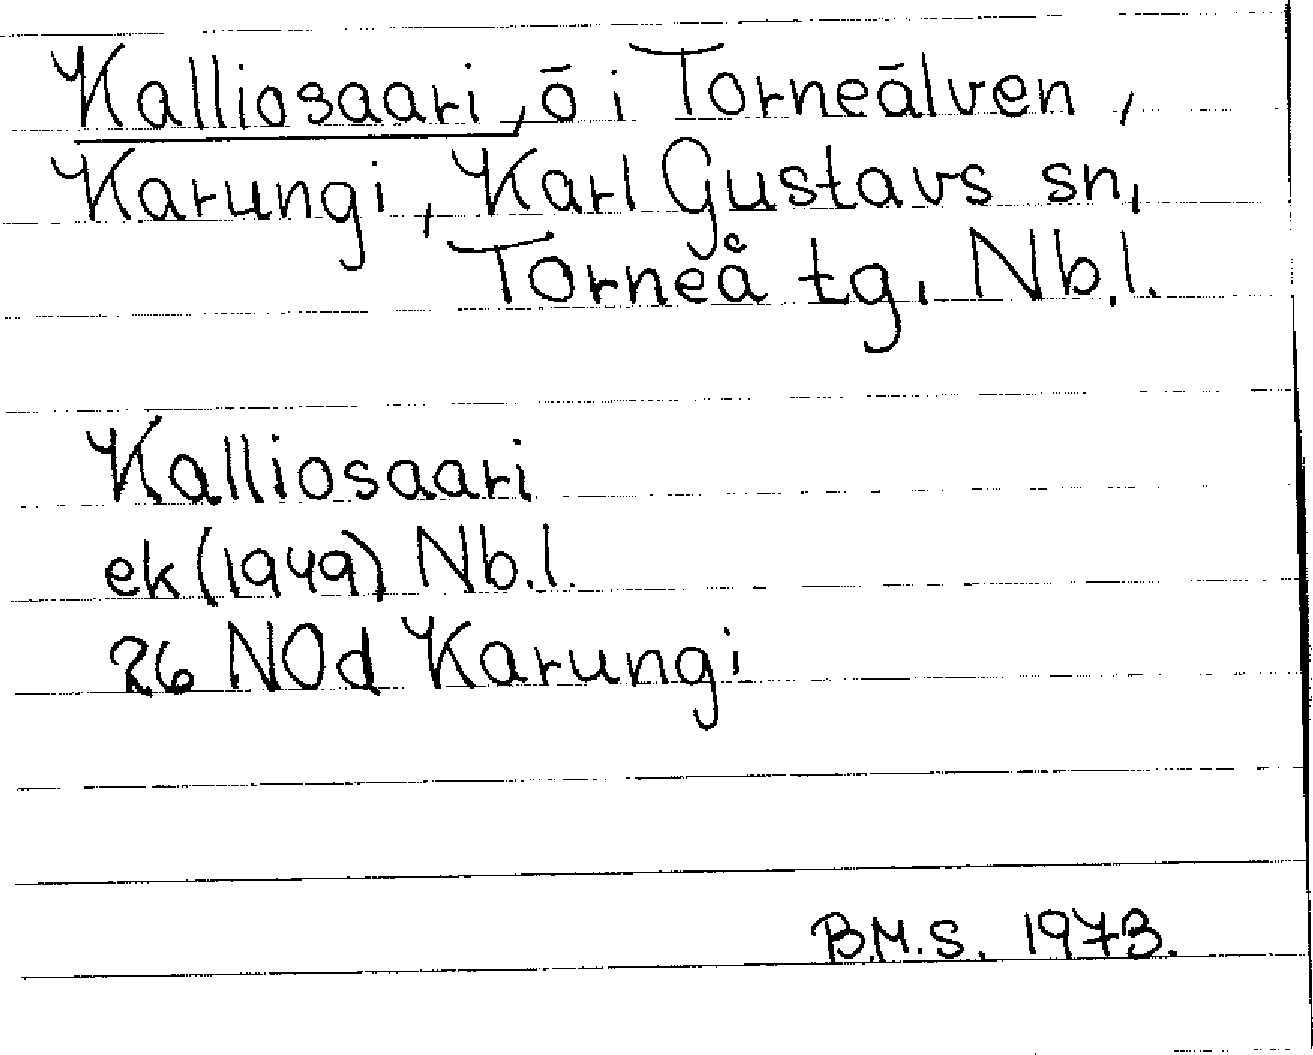 Kalliosaari, ö i Torneälven,
Karungi, Karl Gustavs sn,
Torneå tg, Nb.l.
Kalliosaari
ek (1949) Nb.l.
26 NOd Karungi
B.M.S. 1973.